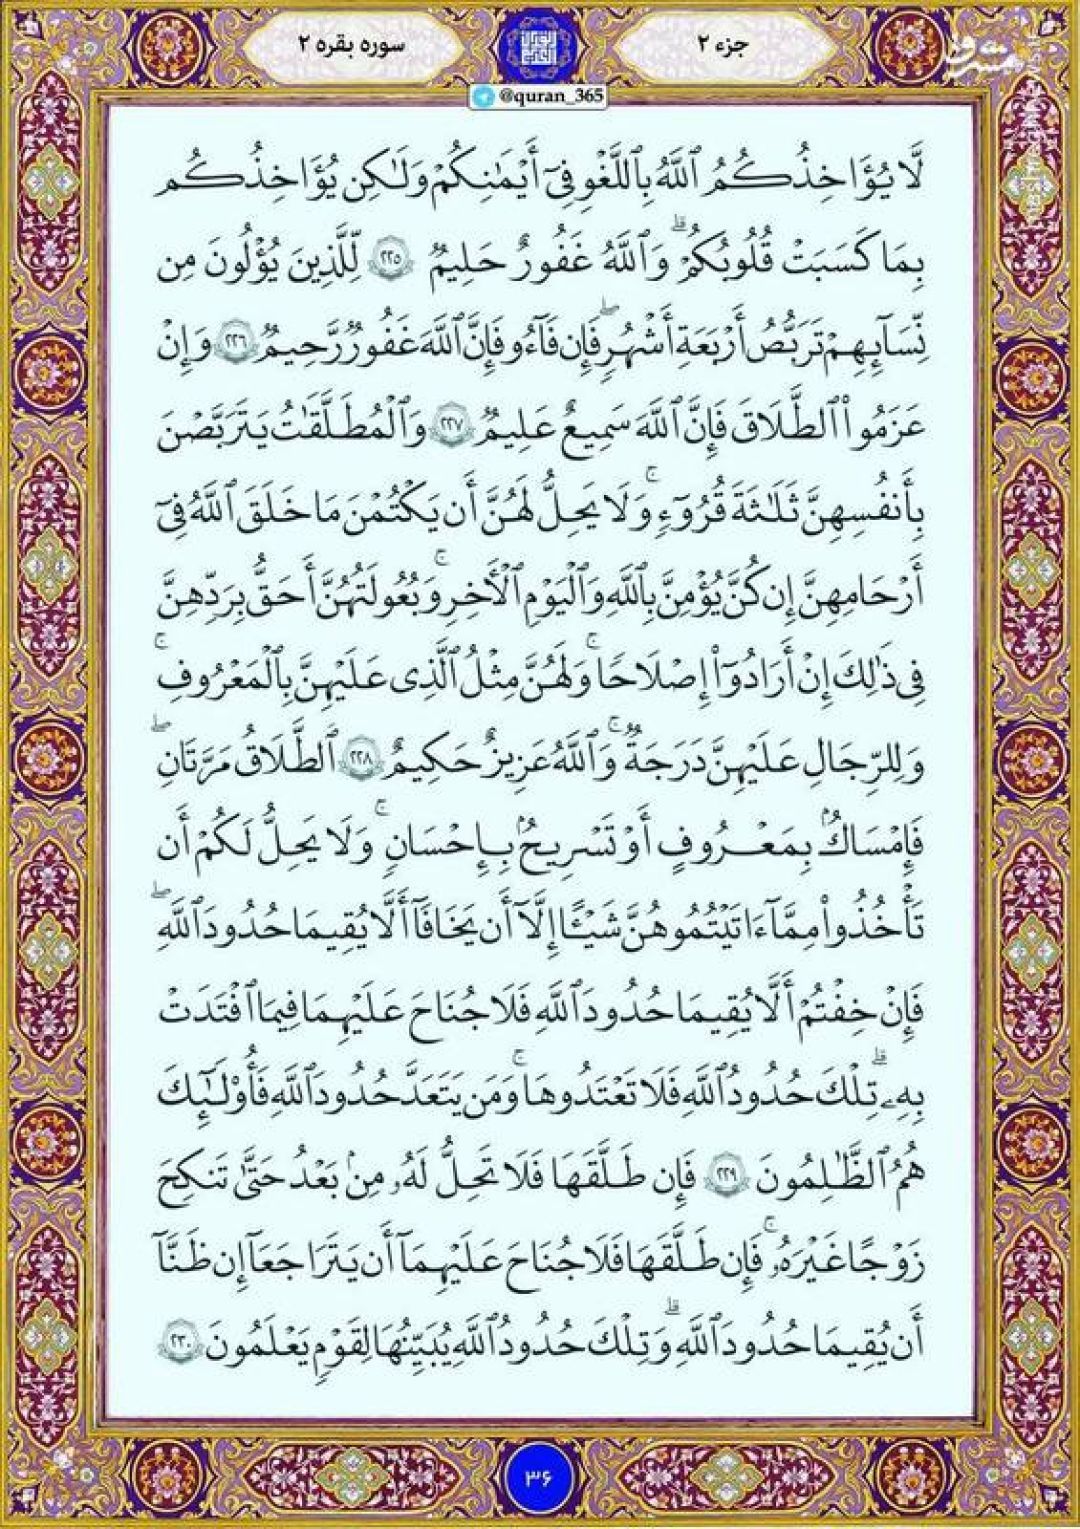 جزء ۲
سوره بقره ۲
@quran_365
مشرق
لَّا يُؤَاخِذُكُمُ ٱللَّهُ بِٱللَّغْوِ فِىٓ أَيْمَٰنِكُمْ وَلَٰكِن يُؤَاخِذُكُم
بِمَا كَسَبَتْ قُلُوبُكُمْ ۗ وَٱللَّهُ غَفُورٌ حَلِيمٌ ۲۲۵ لِّلَّذِينَ يُؤْلُونَ مِن
نِّسَآئِهِمْ تَرَبُّصُ أَرْبَعَةِ أَشْهُرٍ ۖ فَإِن فَآءُو فَإِنَّ ٱللَّهَ غَفُورٌ رَّحِيمٌ ۲۲۶ وَإِنْ
عَزَمُوا۟ ٱلطَّلَٰقَ فَإِنَّ ٱللَّهَ سَمِيعٌ عَلِيمٌ ۲۲۷ وَٱلْمُطَلَّقَٰتُ يَتَرَبَّصْنَ
بِأَنفُسِهِنَّ ثَلَٰثَةَ قُرُوٓءٍ ۚ وَلَا يَحِلُّ لَهُنَّ أَن يَكْتُمْنَ مَا خَلَقَ ٱللَّهُ فِىٓ
أَرْحَامِهِنَّ إِن كُنَّ يُؤْمِنَّ بِٱللَّهِ وَٱلْيَوْمِ ٱلْأَخِرِ ۚ وَبُعُولَتُهُنَّ أَحَقُّ بِرَدِّهِنَّ
فِى ذَٰلِكَ إِنْ أَرَادُوٓا۟ إِصْلَٰحًا ۚ وَلَهُنَّ مِثْلُ ٱلَّذِى عَلَيْهِنَّ بِٱلْمَعْرُوفِ ۚ
وَلِلرِّجَالِ عَلَيْهِنَّ دَرَجَةٌ ۗ وَٱللَّهُ عَزِيزٌ حَكِيمٌ ۲۲۸ ٱلطَّلَٰقُ مَرَّتَانِ ۖ
فَإِمْسَاكٌۢ بِمَعْرُوفٍ أَوْ تَسْرِيحٌۢ بِإِحْسَٰنٍ ۗ وَلَا يَحِلُّ لَكُمْ أَن
تَأْخُذُوا۟ مِمَّآ ءَاتَيْتُمُوهُنَّ شَيْـًٔا إِلَّآ أَن يَخَافَآ أَلَّا يُقِيمَا حُدُودَ ٱللَّهِ ۖ
فَإِنْ خِفْتُمْ أَلَّا يُقِيمَا حُدُودَ ٱللَّهِ فَلَا جُنَاحَ عَلَيْهِمَا فِيمَا ٱفْتَدَتْ
بِهِۦ ۗ تِلْكَ حُدُودُ ٱللَّهِ فَلَا تَعْتَدُوهَا ۚ وَمَن يَتَعَدَّ حُدُودَ ٱللَّهِ فَأُو۟لَٰٓئِكَ
هُمُ ٱلظَّٰلِمُونَ ۲۲۹ فَإِن طَلَّقَهَا فَلَا تَحِلُّ لَهُۥ مِنۢ بَعْدُ حَتَّىٰ تَنكِحَ
زَوْجًا غَيْرَهُۥ ۗ فَإِن طَلَّقَهَا فَلَا جُنَاحَ عَلَيْهِمَآ أَن يَتَرَاجَعَآ إِن ظَنَّآ
أَن يُقِيمَا حُدُودَ ٱللَّهِ ۗ وَتِلْكَ حُدُودُ ٱللَّهِ يُبَيِّنُهَا لِقَوْمٍ يَعْلَمُونَ ۲۳۰
۳۶